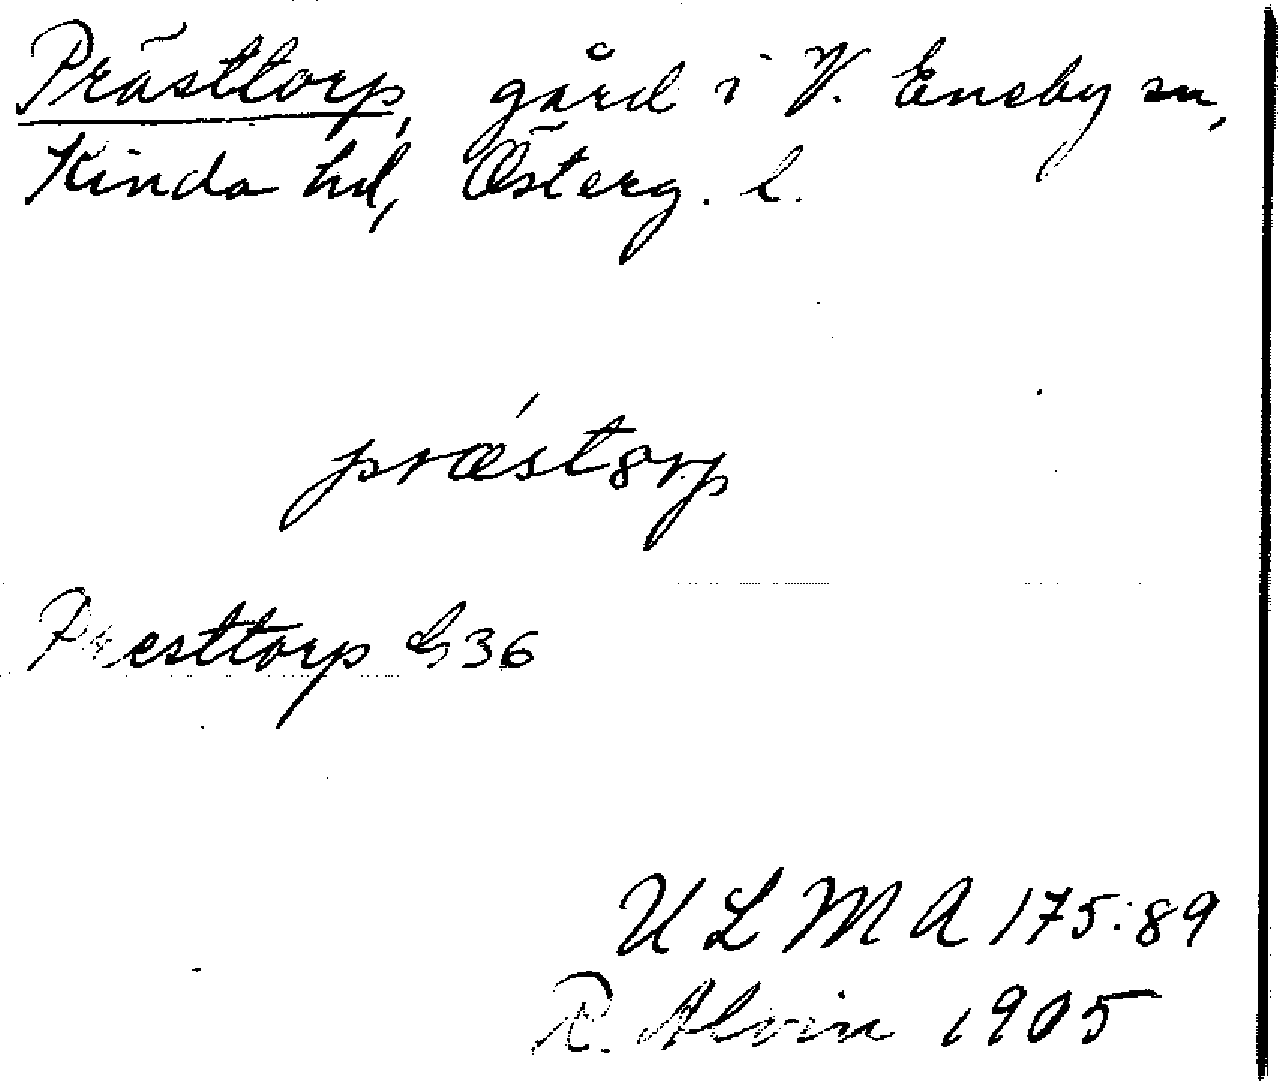 Prästtorp, gård i V. Eneby sn,
Kinda hd, Österg. l.
præ´st8rp
Presttorp G36
ULMA 175:89
R. Alvin 1905